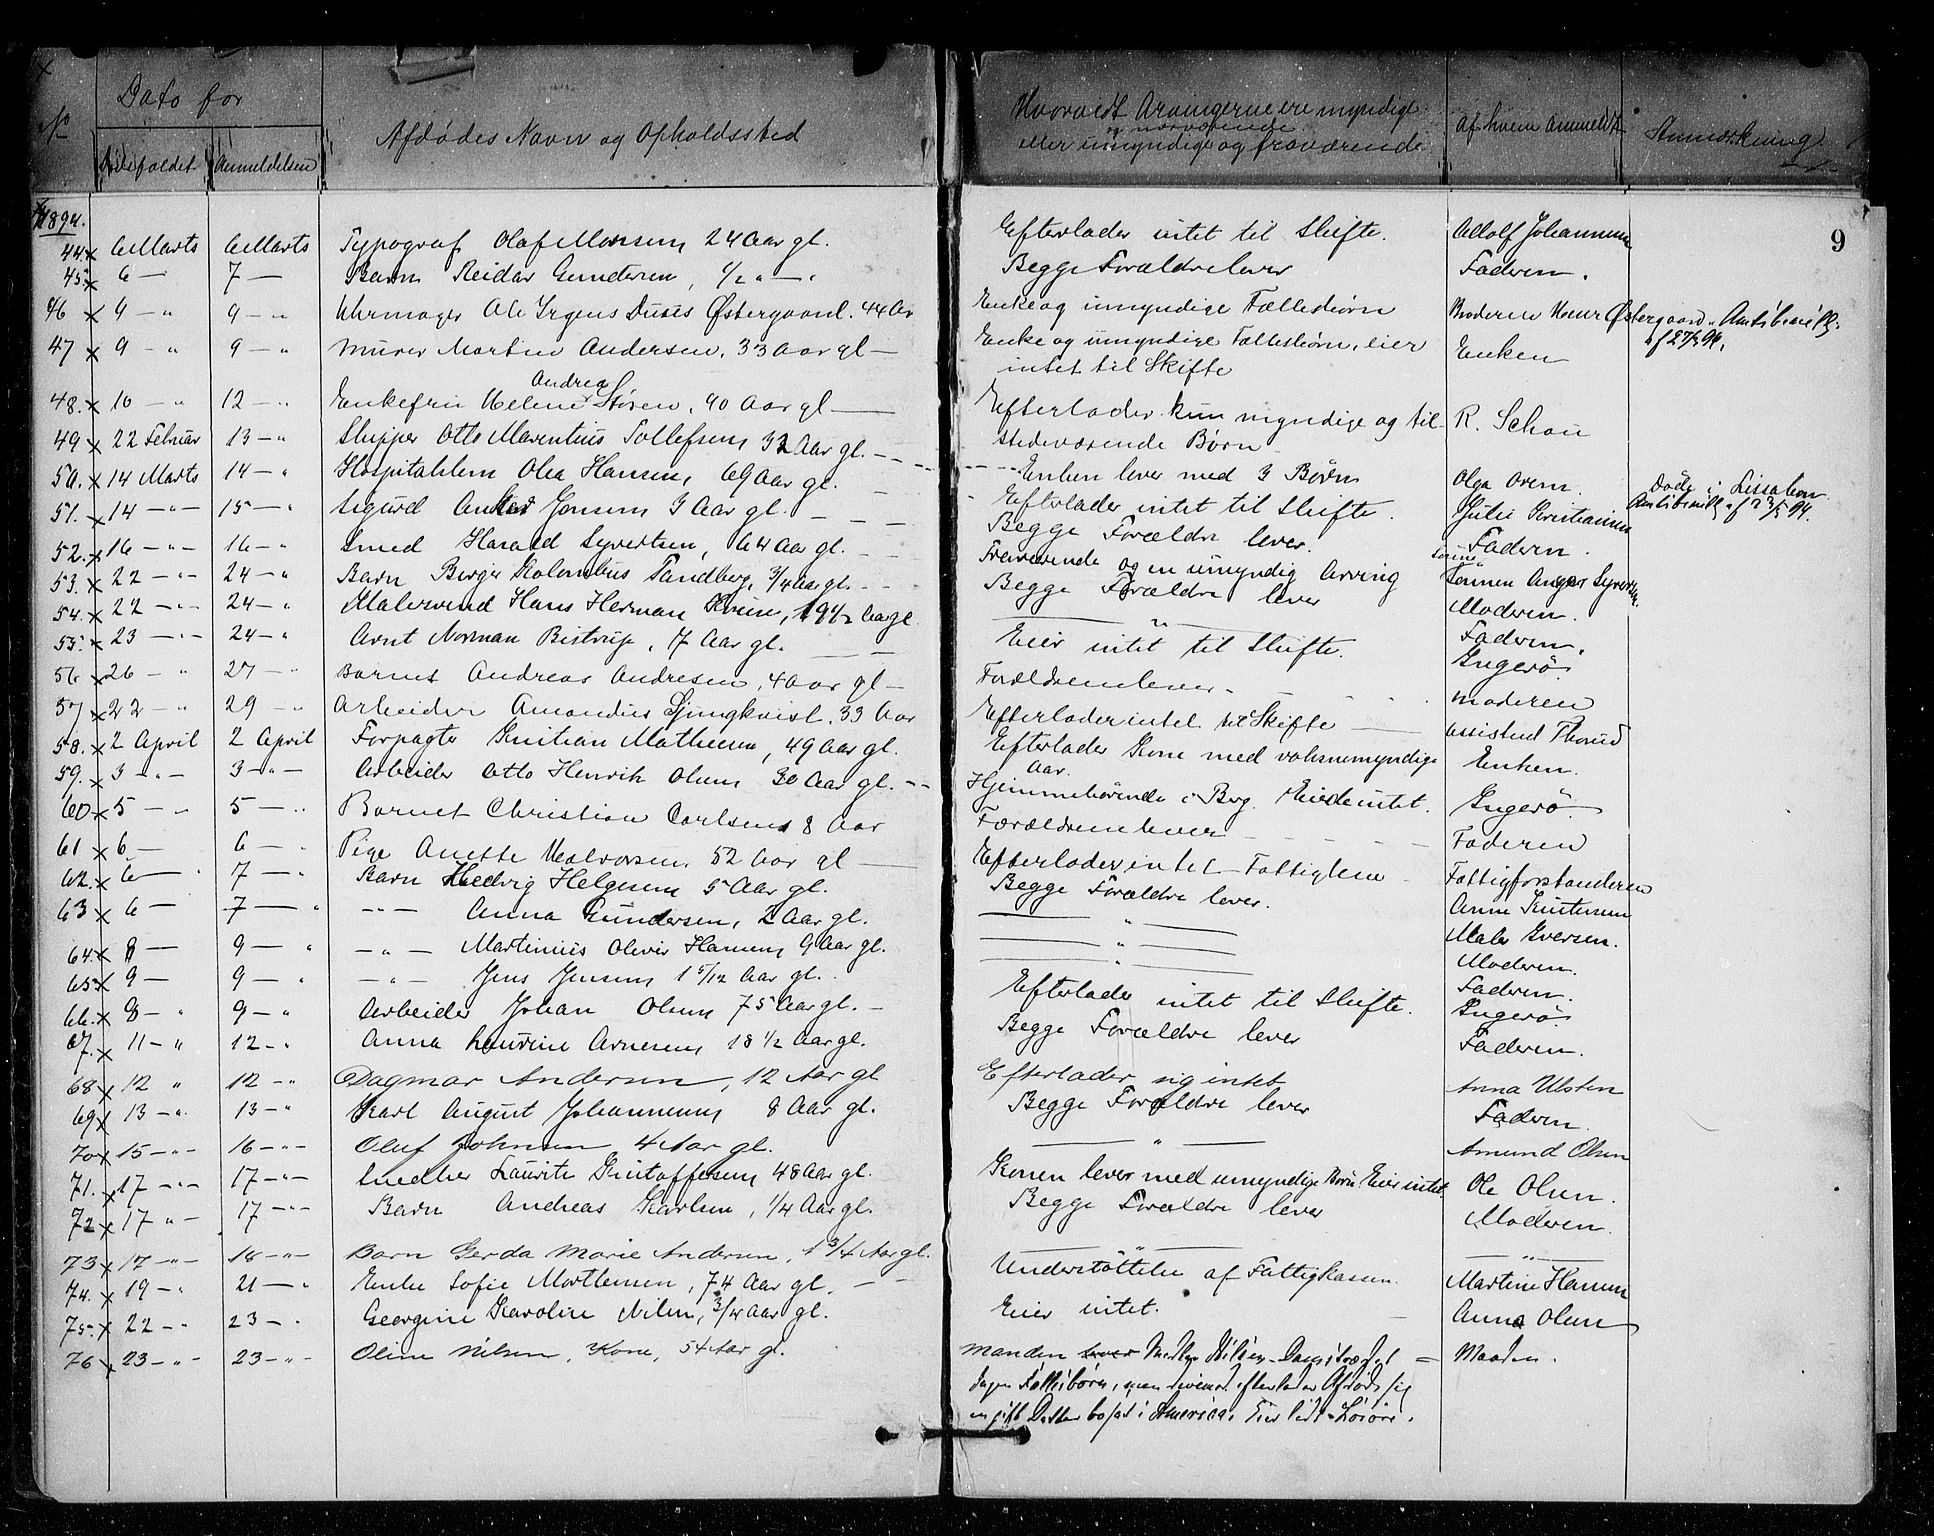 No
Dato for
Dødsfaldet
Anmeldelsen
Afdødes Navn og Opholdssted
Hvorvidt Arvingerne ere myndige
og nærværende
eller umyndige og fraværende
af hvem anmeldt
Anmærkning
9
1894.
44. 6 Marts 6 Marts Typograf Olaf Monsen 24 Aar gl. Efterlader intet til Skifte. Adolf Johannesen
45. 6 — 7 — Barn Reidar Gundersen, 1/2 " — " Begge Forældre lever Faderen.
46 9 — " 9 — " Uhrmager Ole Irgens Duus Østergaard. 44 Aar Enke og umyndige Fællesbørn Broderen Østergaard. Amtsbevillg.
af 27/3 94.
47 9 — " 9 — " Murer Martin Andersen, 33 Aar gl — Enke og umyndige Fællesbørn, eier Enken
intet til Skifte
Andrea
48. 10 — " 12 — " Enkefru Helene Støren, 90 Aar gl — Efterlader kun myndige og til- R. Schou
stedeværende Børn
49 22 Februar 13 — " Skipper Otto Marentius Tollefsen 32 Aar gl. Enken lever med 3 Børn Olga Døde i Lissabon
Amtsbevillg af 23/5 94.
50. 14 Marts 14 — " Hospitalslem Olea Hansen, 69 Aar gl. — Efterlader intet til Skifte. Julie Kristiansen
51. 14 — " — 15 — " Sigurd Jensen 3 Aar gl. Begge Forældre lever. Faderen.
52. 16 — " — 16 — " Smed Harald Syvertsen, 64 Aar gl. Fraværende og en umyndig Arving Sønnen Syvertsen.
53. 22 — " — 24 — " Barn Birger Kolombus Tandberg, 3/4 Aar gl. Begge Forældre lever Moderen.
54. 22 — " — 24 — " Malersvend Hans Herman 19 1/2 Aar gl. — " — Faderen.
55. 23 — " — 24 — " Arnt Norman Bistrup, 17 Aar gl. Eier intet til Skifte. Ingerø.
56 26 — " 27 — " Barnet Andreas Andresen, 4 Aar gl — Forældrene lever — Moderen
57 22 — " 29 — " Arbeider Amandus Ljungkvist. 33 Aar Efterlader intet til Skifte — Assistent Thorud
58. 2 April 2 April Forpagter Kristian Mathiesen, 49 Aar gl. Efterlader Kone med voksne myndige Enken.
59. 3 — " — 3 — " — Arbeider Otto Henrik Olsen 30 Aar gl. — Hjemmehørende i Berg. Eiede intet. Ingerø.
60 5 — " 5 — " Barnet Christian Carlsen 8 Aar Forældrene lever — Faderen
61 6 — 6 — " Pige Anette Halvorsen 52 Aar gl — Efterlader intet — Fattiglem Fattigforstanderen
62. 6 — " 7 — " Barn Hedvig Helgesen 5 Aar gl. Begge Forældre lever. Anne Kristensen
63 6 — 7 — " — " — Anna Gundersen, 2 Aar gl. — " — Maler Iversen.
64. 8 — 9 — " — " — Martinius Oliver Hansen 9 Aar gl. — " — Moderen.
65 9 — 9 — " — " — Jens Jensen 1 5/12 Aar gl. — " — Faderen.
66. 8 — " 9 — " Arbeider Johan Olsen 75 Aar gl. — Efterlader intet til Skifte. Ingerø.
67. 11 — " 12 — " Anna Laurine Arnesen 18 1/2 Aar gl. Begge Forældre lever Faderen.
68 12 " 12 — " Dagmar Andersen, 12 Aar gl Efterlader sig intet Anna Ulsten
69 13 — " 13 — " Karl August Johannesen 8 Aar gl. Begge Forældre lever Faderen.
70 15 — " — 16 — " — Oluf Johnsen 4 Aar gl. — " — Amund Olsen
71. 17 — " — 17 — " — Laurits Kristoffersen 48 Aar gl. Konen lever med umyndige Børn Eier intet Ole Olsen.
72 17 " — 17 — " — Barn Andreas Karlsen, 1/4 Aar gl. Begge Forældre lever Moderen.
73 17 — " — 18 — " — Barn Gerda Marie Andersen, 1 3/4 Aar gl. — " — — " —
74. 19 — " 21 — " Enke Sofie Mortensen, 74 Aar gl. — Understøttelse af Fattigkassen. Martine Hansen
75. 22 — " 23 — " Georgine Karoline Nilsen, 3/4 Aar gl. Eier intet. Anna Olsen
76 23 — " — 23 — " — Oline Nilsen, Kone, 54 Aar gl. Manden lever Nilsen = Manden.
Fællesbørn, men efterlader Afdøde sig
en gift Datter bosat i Amerika. Eier lidt Løsøre.